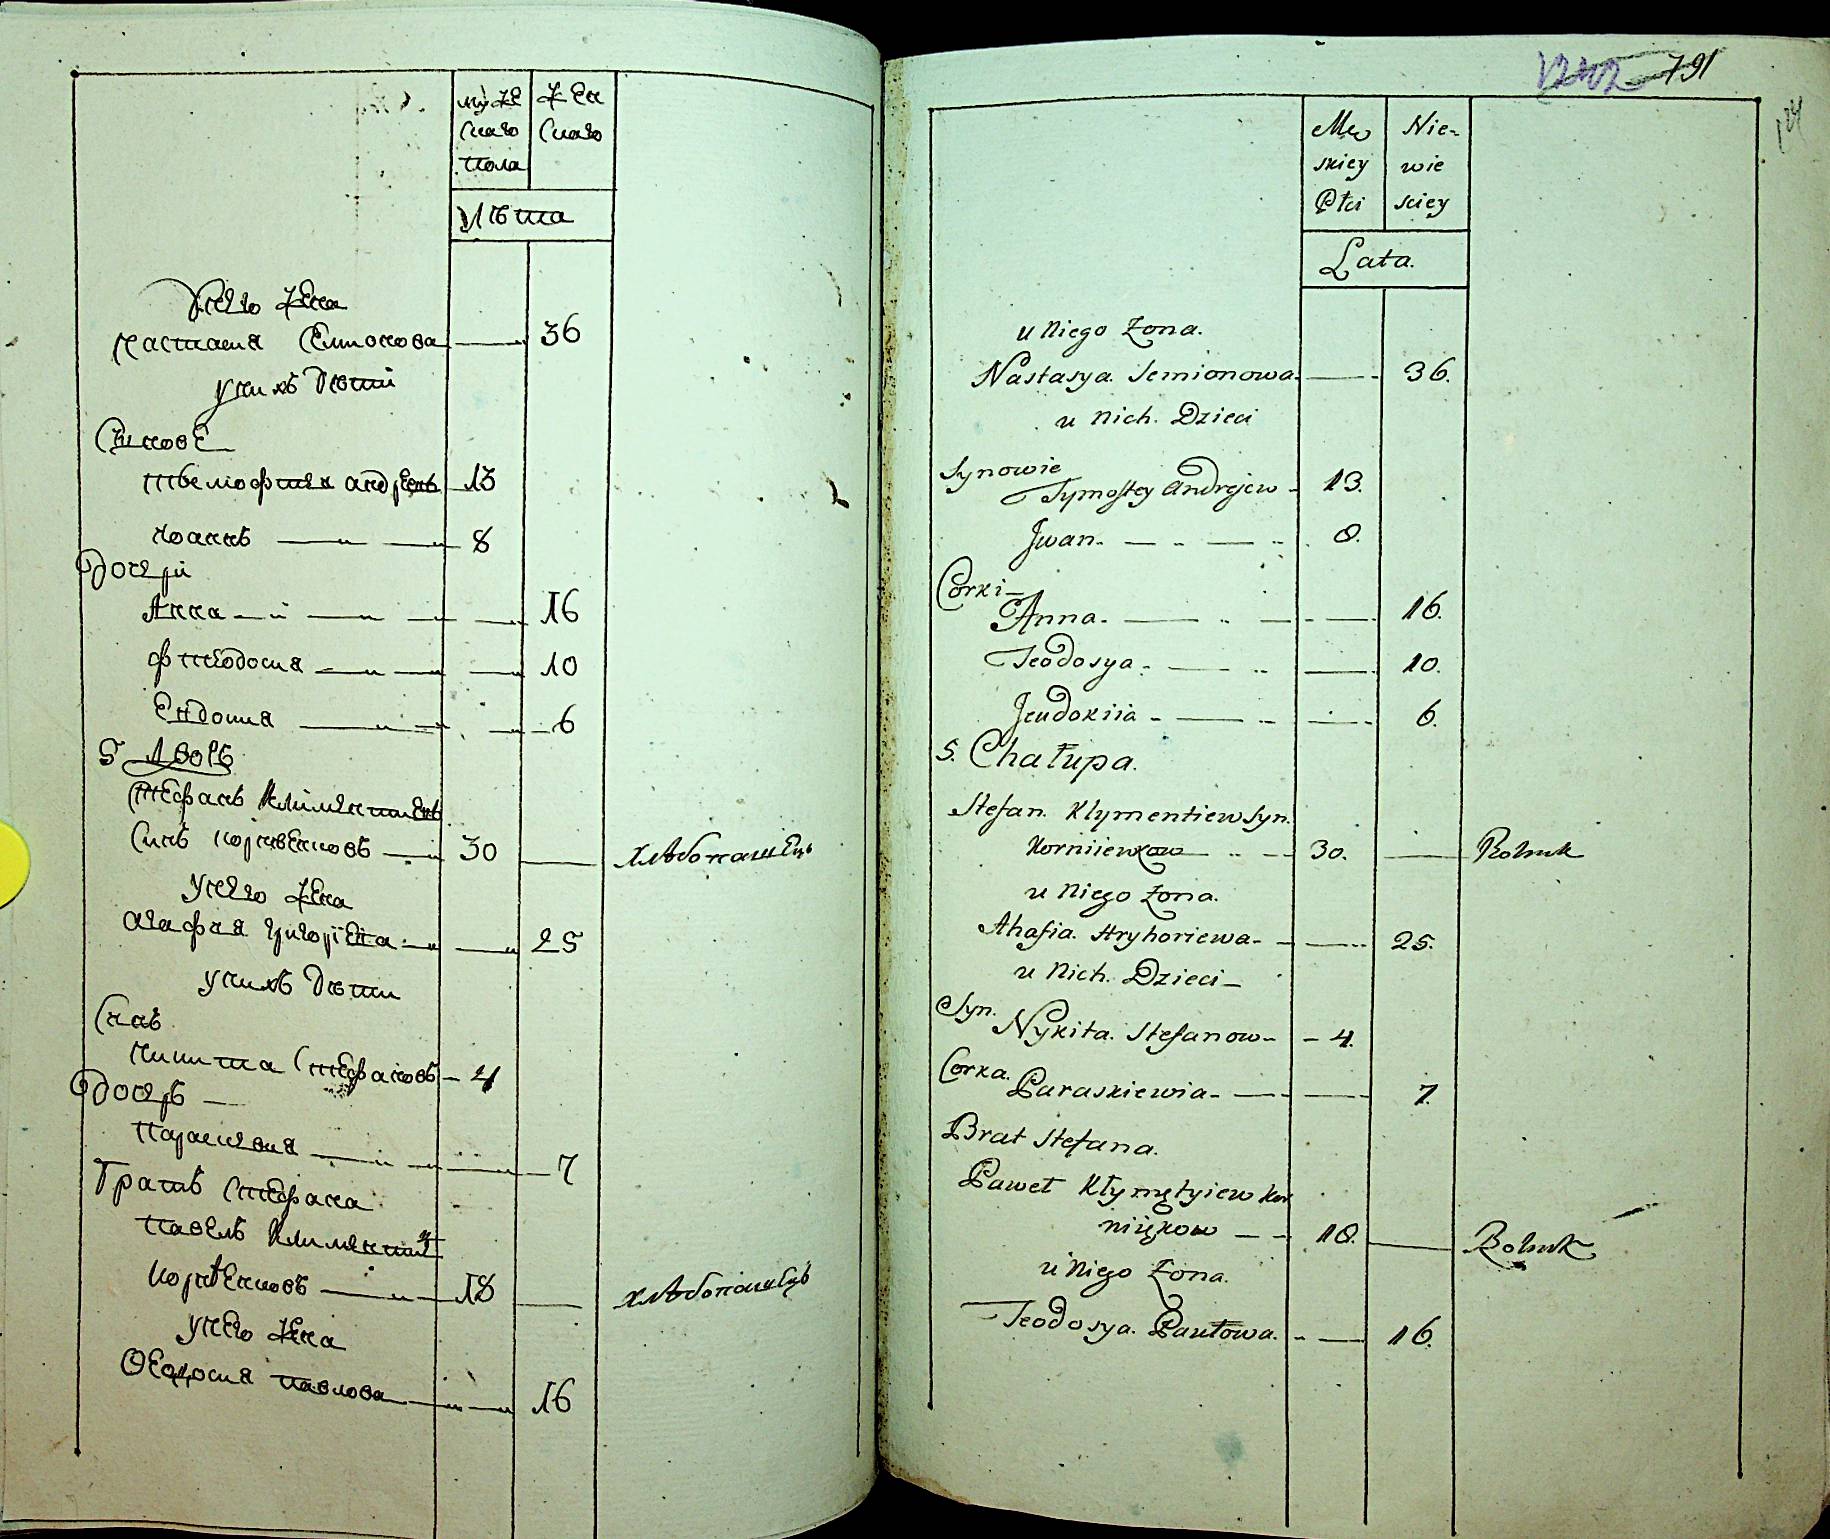 мужескаго пола
женскаго
Лѣта
Унего жена
Настасия Семионова — 36
унихъ дѣти
Синове
Тѣмофтей Андреевъ — 13
Иоаннъ — 8
Дочери
Анна — 16
Фтеодосия — 10
Евдокия — 6
5 Дворъ
Стефанъ Климентиевъ
Синъ Корнѣенковъ — 30 — хлѣбопашецъ
Унего жена
Агафия Григориева — 25
унихъ дѣти
Синъ
Никита Стефановъ — 4
Дочеръ —
Параскевия — 7
Братъ Стефана
Павелъ Климентиев
Корнѣенковъ — 18 — хлѣбопашецъ
Унего жена
Ѳеодосия Павлова — 16
791
Męskiey Płci
Niewiesciey
Lata.
u Niego Żona.
Nastasya. Semionowa. — 36.
u Nich. Dzieci
Synowie
Tymoftey Andrejew - 13.
Jwan. — 8.
Corki —
Anna. — 16.
Teodosya. — 10.
Jeudokiia - — 6.
5. Chałupa.
Stefan. Klymentiew Syn.
Korniienkow — 30. — Rolnik
u Niego Żona.
Ahafia. Hryhoriewa - — 25.
u Nich. Dzieci —
Syn.
Nykita. Stefanow - - 4.
Corka.
Paraskiewia - — 7.
Brat Stefana.
Paweł Kłymętyiew Kor
niękow — 18. — Rolnik
u Niego Żona.
Teodosya. Pawłowa. - — 16.